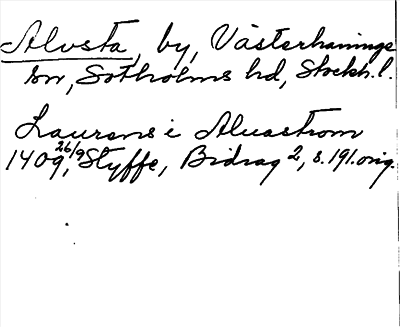 Alvsta, by, Västerhaninge
sn, Sotholms hd, Stockh. l.
Laurens i Aluastom
1409 26/9, Styffe, Bidrag 2, s. 191. orig.